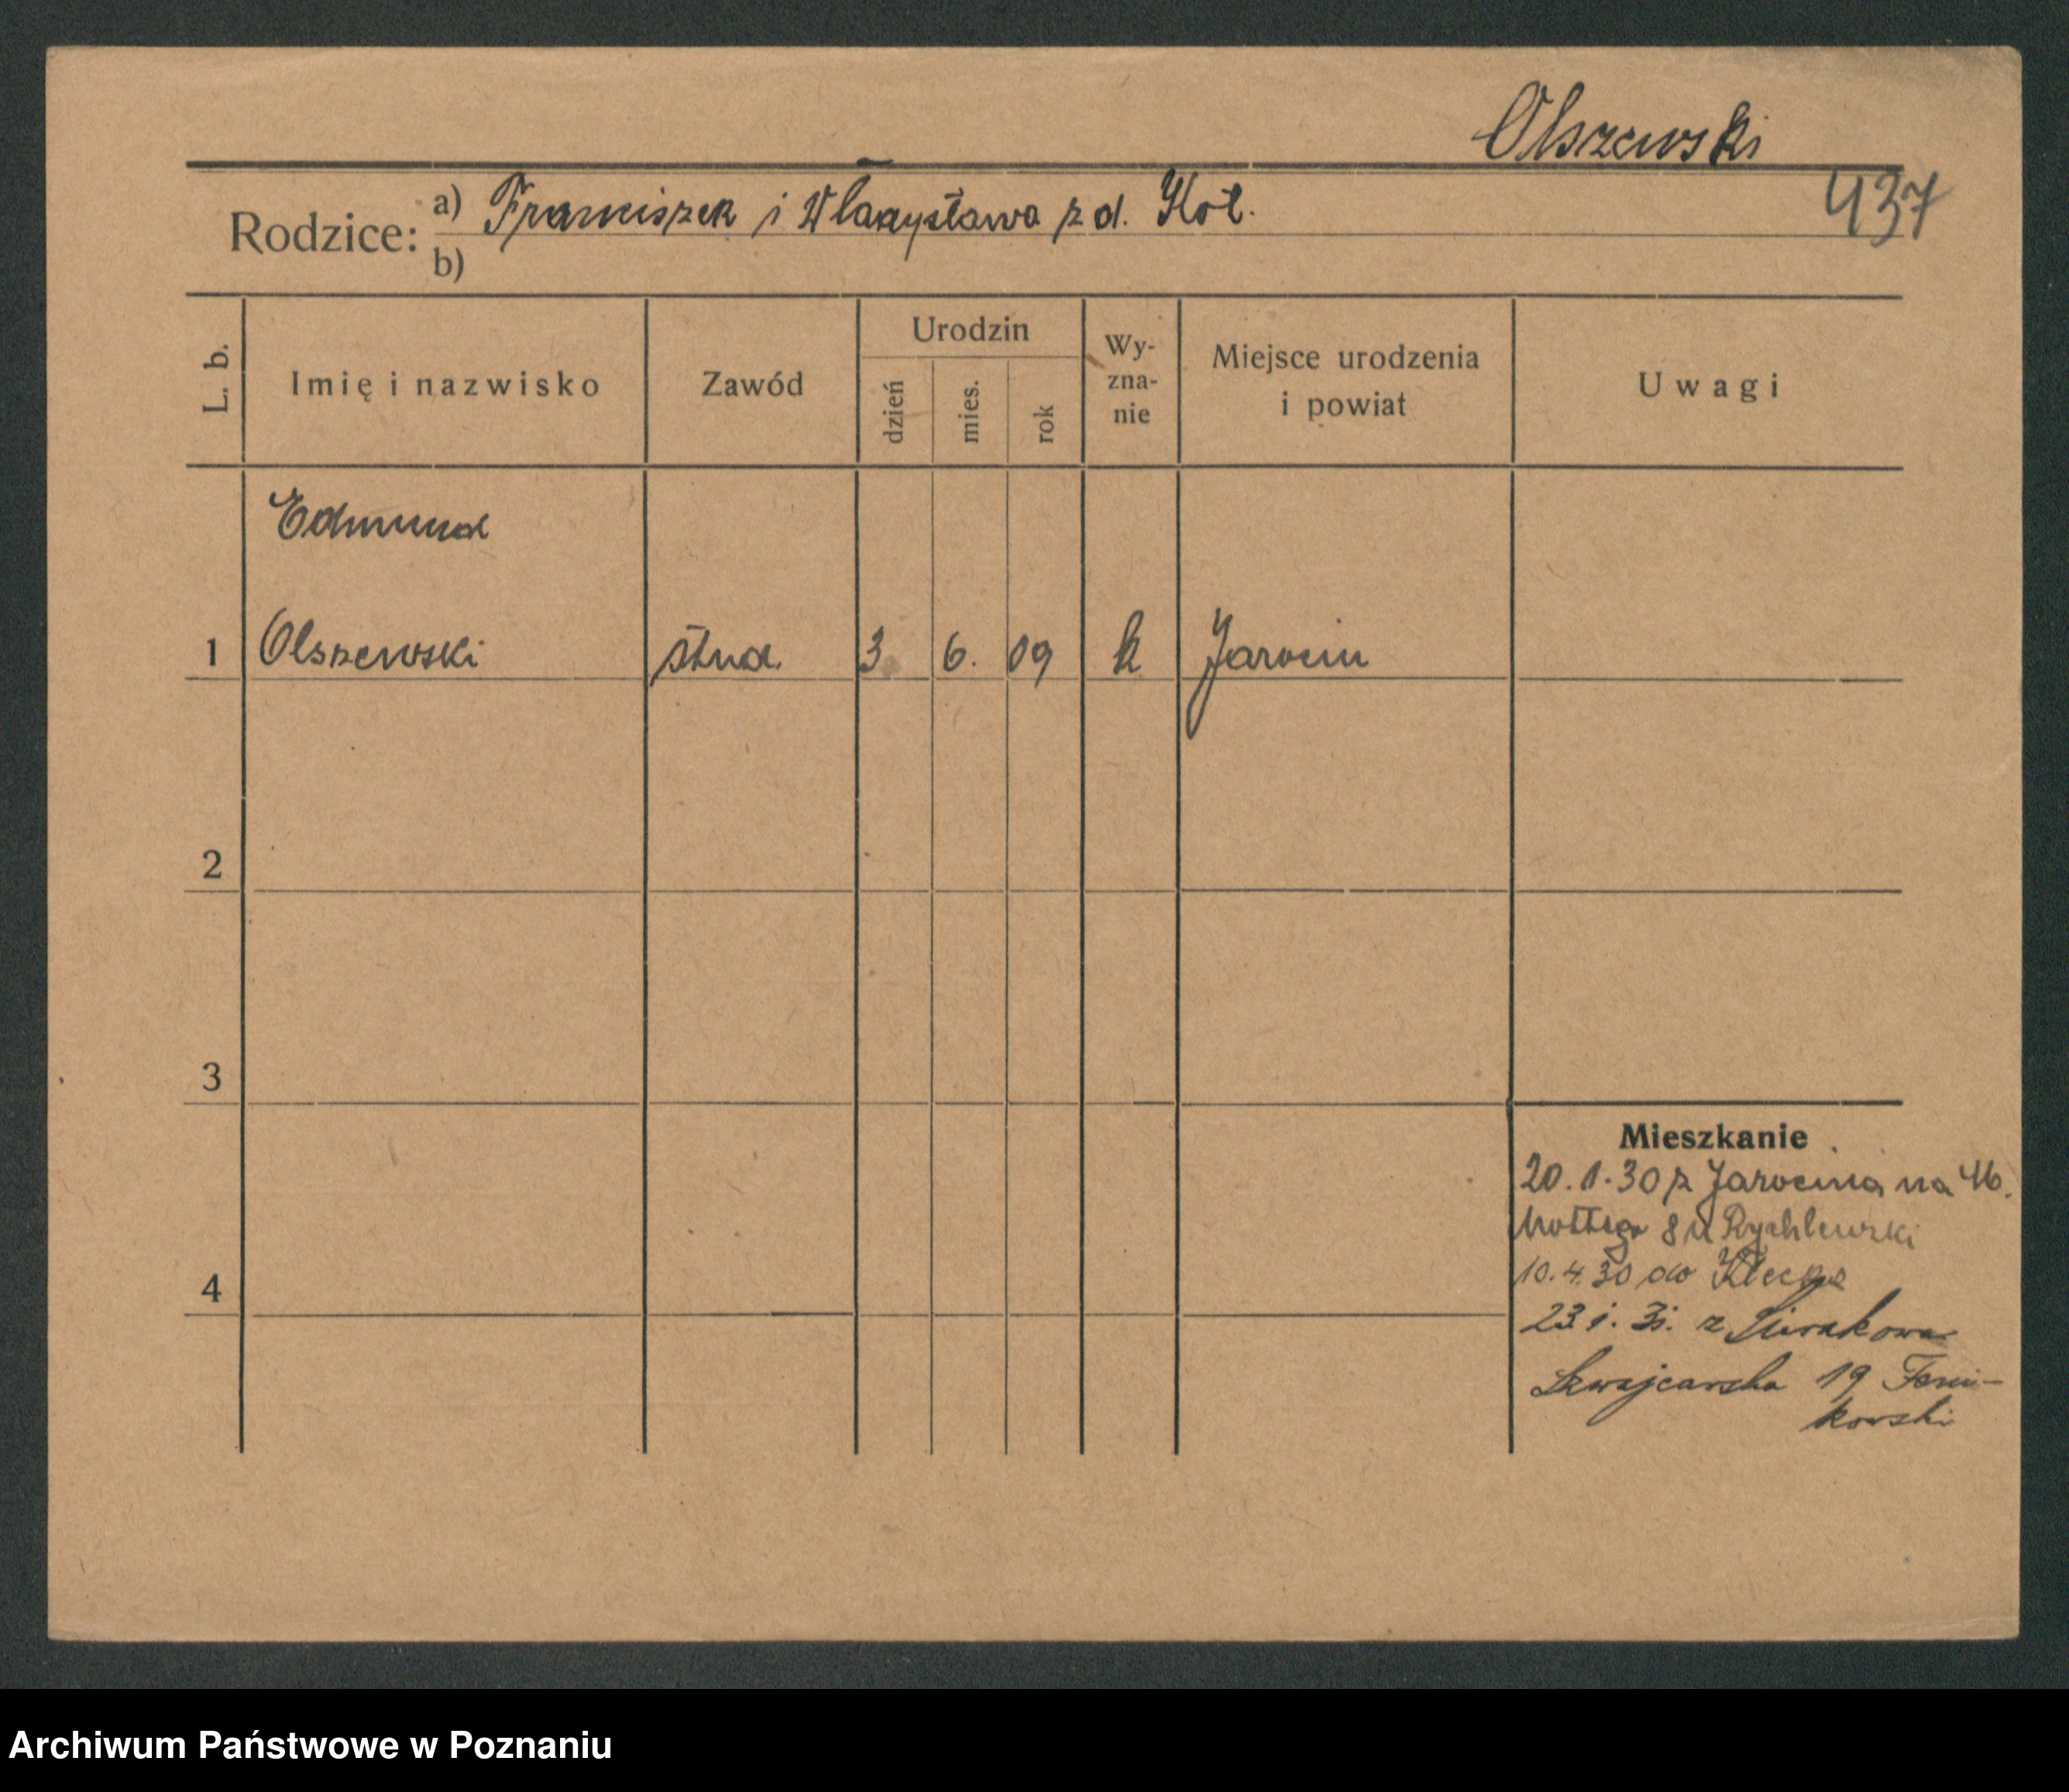 Olszewski
437
Rodzice: a) Franciszek i Władysława z d. Kot.
b)
L. b. Imię i nazwisko Zawód Urodzin dzień mies. rok Wy-zna-nie Miejsce urodzenia i powiat Uwagi
Edmund
1 Olszewski stud. 3 6. 09 k Jarocin
2
3
4
Mieszkanie
20.1.30 z Jarocina na
8 u Rychlewski
10.4.30 do Klecka
23.1.31. z Sierakowa
Szwajcarska 19
kowski
Archiwum Państwowe w Poznaniu